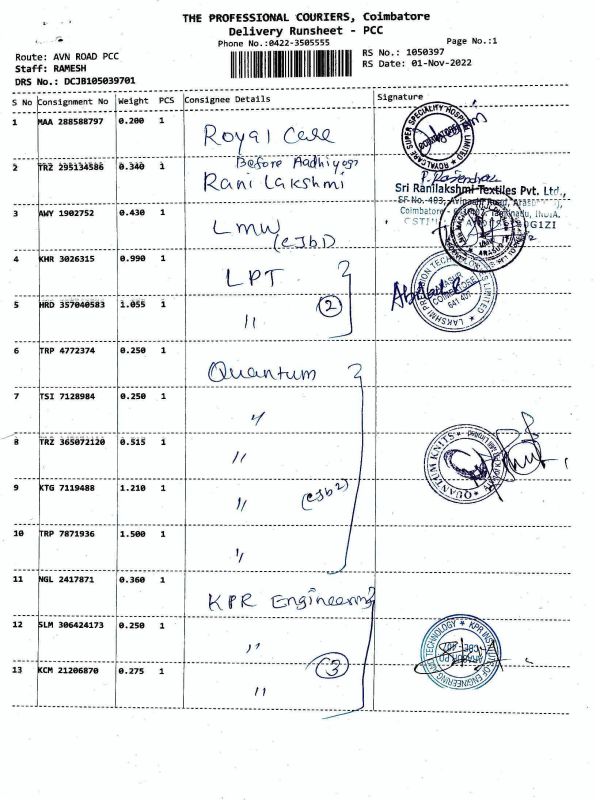 THE PROFESSIONAL COURIERS, Coimbatore
Delivery Runsheet - PCC
Phone No.:0422-3505555
Page No.:1
Route: AVN ROAD PCC
Staff: RAMESH
DRS No.: DCJB105039701
RS No.: 1050397
RS Date: 01-Nov-2022
S No Consignment No Weight PCS Consignee Details Signature
1 MAA 288588797 0.200 1 Royal Care
Before Aadhiyogi
2 TRZ 295134586 0.340 1 Rani Lakshmi
P. Rajendran
Sri Ranilakshmi Textiles Pvt. Ltd.,
SF No. 403, Avinashi Road, Arasur
Coimbatore
3 AWY 1902752 0.430 1 LMW
(CJb1)
4 KHR 3026315 0.990 1 LPT
5 HRD 357040583 1.055 1 " 2
LAKSHMI PRECISION LIMITED
641 407
6 TRP 4772374 0.250 1 Quantum
7 TSI 7128984 0.250 1 "
8 TRZ 365072120 0.515 1 "
QUANTUM KNITS
9 KTG 7119488 1.210 1 " (CJb2)
10 TRP 7871936 1.500 1 "
11 NGL 2417871 0.360 1 KPR Engineering
12 SLM 306424173 0.250 1 "
KPR INSTITUTE OF ENGINEERING AND TECHNOLOGY
13 KCM 21206870 0.275 1 " 3
ROYAL CARE SUPER SPECIALITY HOSPITAL LIMITED